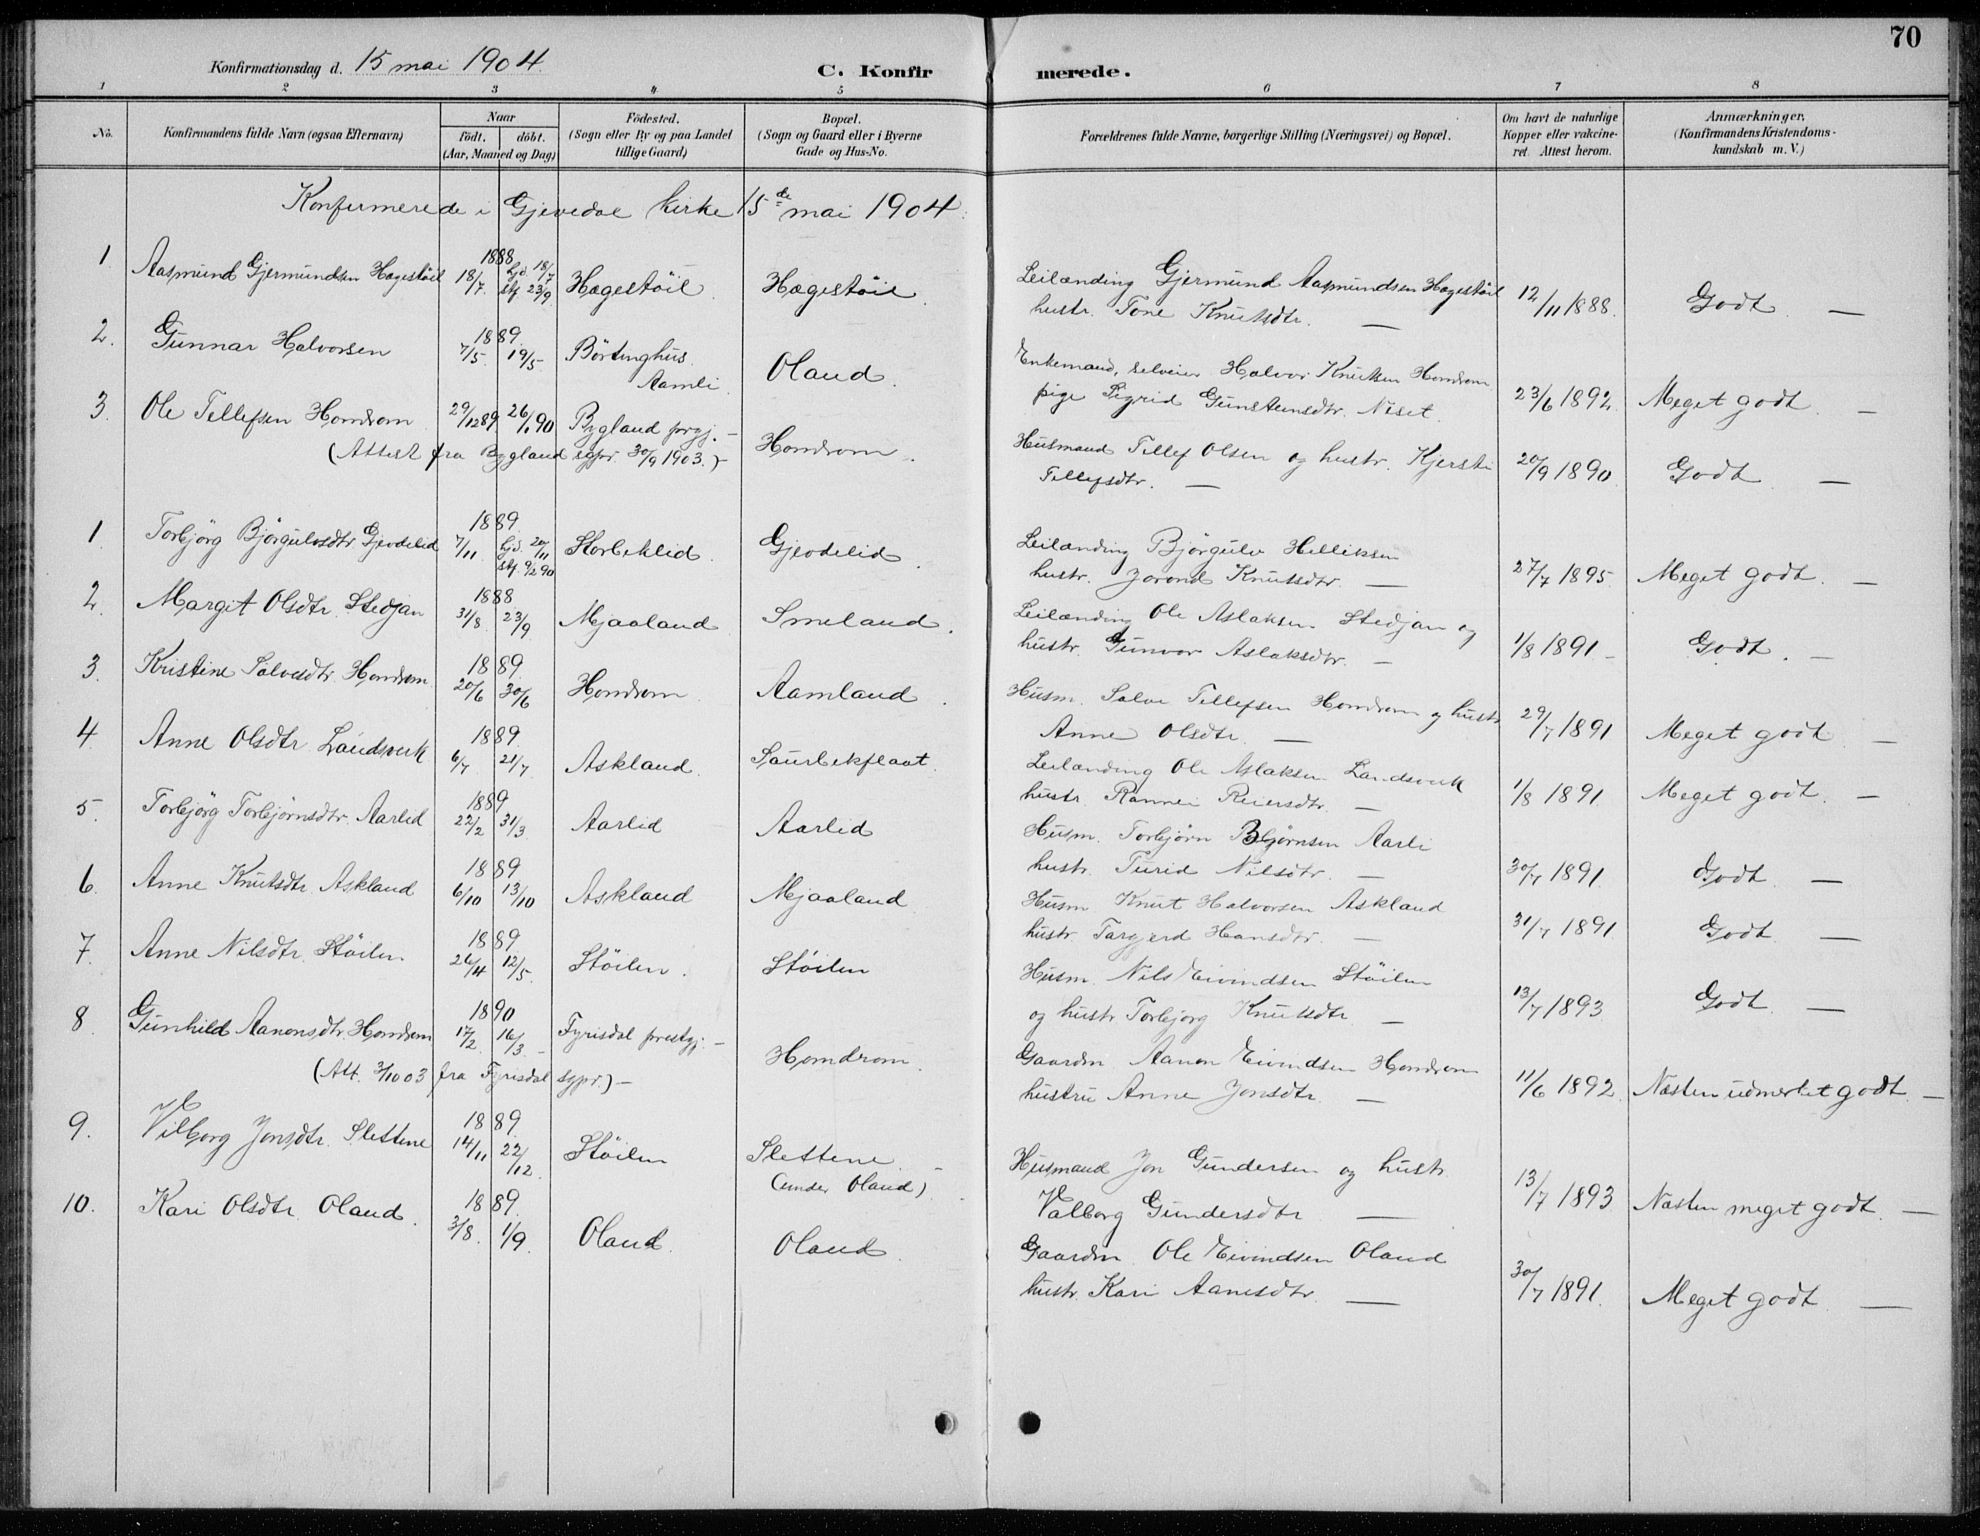 70
Konfirmationsdag d. 15 mai 1904.
C. Konfirmerede.
1 2 3 4 5 6 7 8
No.
Konfirmandens fulde Navn (ogsaa Efternavn)
Naar
födt. döbt.
(Aar, Maaned og Dag)
Födested.
(Sogn eller By og paa Landet
tillige Gaard)
Bopæl.
(Sogn og Gaard eller i Byerne
Gade og Hus-No.
Forældrenes fulde Navne, borgerlige Stilling (Næringsvei) og Bopæl.
Om havt de naturlige
Kopper eller vakcine-
ret. Attest herom.
Anmærkninger,
(Konfirmandens Kristendoms-
kundskab m. V.)
Konfirmerede i Gjevedal kirke 15de mai 1904.
1 Aasmund Gjermundsen Hægestöil 1888 18/7. hjd. 18/7 stf. 23/9 Hægestöil. Hægestöil. Leilænding Gjermund Aasmundsen Hægestöil 12/11 1888. Godt. —
hustr. Tone Knutsdtr. —
2. Gunnar Halvorsen 1889. 7/5. 19/5 Börtinghus. Aamli. Oland. Enkemand, selveier Halvor Knutsen Homdrom 23/6 1892. Meget godt. —
pige Sigrid Gunsteinsdtr. Neset
3. Ole Tellefsen Homdrom 29/12 89 26/1 90 Bygland prgj. — Homdrom. Husmand Tellef Olsen og hustr. Kjersti 20/9 1890. Godt. —
(Attest fra Bygland sgpr. 30/9 1903.)—
Tellefsdtr. —
1. Torbjörg Björgulvsdtr. Gjevdelid 1889. 7/11 hjd. 20/11 stf. 9/2 90 Horbeklid. Gjevdelid. Leilænding Björgulv Helliksen 27/7 1895. Meget godt. —
hustr. Jorond Knutsdtr. —
2. Margit Olsdtr. Stedjan 1888 31/8. 23/9. Mjaaland Smeland. Leilænding Ole Aslaksen Stedjan og 1/8 1891 — Godt. —
hustr. Gunvor Aslaksdtr. —
3. Kristine Salvesdtr. Homdrom 1889. 20/6 30/6 Homdrom. Aamland. Husm. Salve Tellefsen Homdrom og hustr 29/7 1891 Meget godt. —
Anne Olsdtr. —
4. Anne Olsdtr. Landsverk 1889. 6/7. 21/7 Askland. Saurbekflaat. Leilænding Ole Aslaksen Landsverk 1/8 1891. Meget godt. —
hustr. Rannei Reiersdtr. —
5. Torbjörg Torbjörnsdtr. Aarlid 1889 22/2 31/3 Aarlid Aarlid Husm. Torbjörn Björnsen Aarli 30/7 1891. Godt. —
hustr. Turid Nilsdtr. —
6. Anne Knutsdtr. Askland 1889 6/10 13/10 Askland Mjaaland Husm. Knut Halvorsen Askland 31/7 1891. Godt —
hustr. Targjerd Hansdtr. —
7. Anne Nilsdtr. Stöilen 1889. 26/4 12/5. Stöilen. Stöilen Husm. Nils Eivindsen Stöilen 13/7 1893. Godt. —
og hustr Torbjörg Knutsdtr —
8. Gunhild Aanonsdtr. Homdrom 1890 17/2. 16/3. — Fyrisdal prestgj. — Homdrom. Gaardm Aanon Eivindsen Homdrom 11/6 1892. Næsten udmerket godt. —
(Att. 3/10 03 fra Fyrisdal sgpr.)—
hustru Anne Jonsdtr. —
9. Vilborg Jonsdtr. Slettene 1889. 14/11 22/12. Stöilen Slettene. — (under Oland). Husmand Jon Gundersen og hustr. 13/7 1893 Næsten meget godt. —
Valborg Gundersdtr —
10. Kari Olsdtr. Oland. 1889. 3/8. 1/9. Oland. Oland. Gaardm. Ole Eivindsen Oland 30/7 1891. Meget godt. —
hustr. Kari Aanesdtr. —